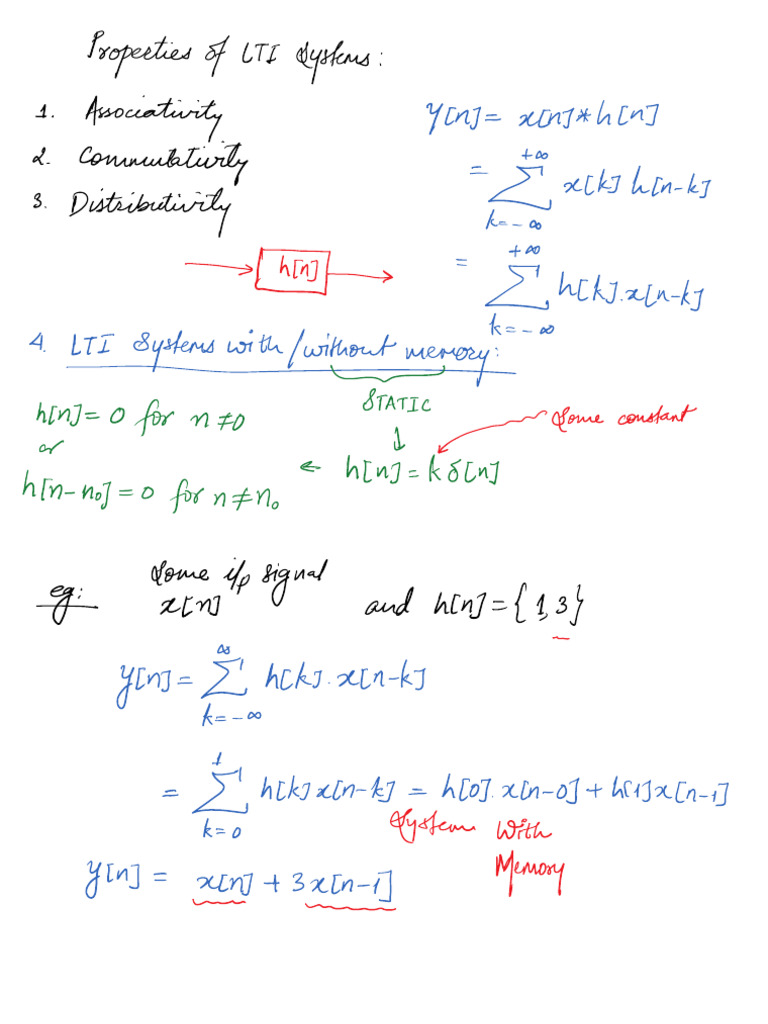 Properties of LTI Systems:
1. Associativity
2. Commutativity
3. Distributivity
y[n] = x[n]*h[n]
= +∞ Σ k=-∞ x[k] h[n-k]
= +∞ Σ k=-∞ h[k].x[n-k]
h[n]
4. LTI Systems with/without memory:
STATIC
↓
Some constant
h[n]=0 for n≠0
or
← h[n]=kδ[n]
h[n-n₀]=0 for n≠n₀
eg: Some i/p signal
x[n] and h[n]={1,3}
y[n]= ∞ Σ k=-∞ h[k].x[n-k]
= 1 Σ k=0 h[k]x[n-k] = h[0].x[n-0]+h[1]x[n-1]
System With
Memory
y[n] = x[n]+3x[n-1]